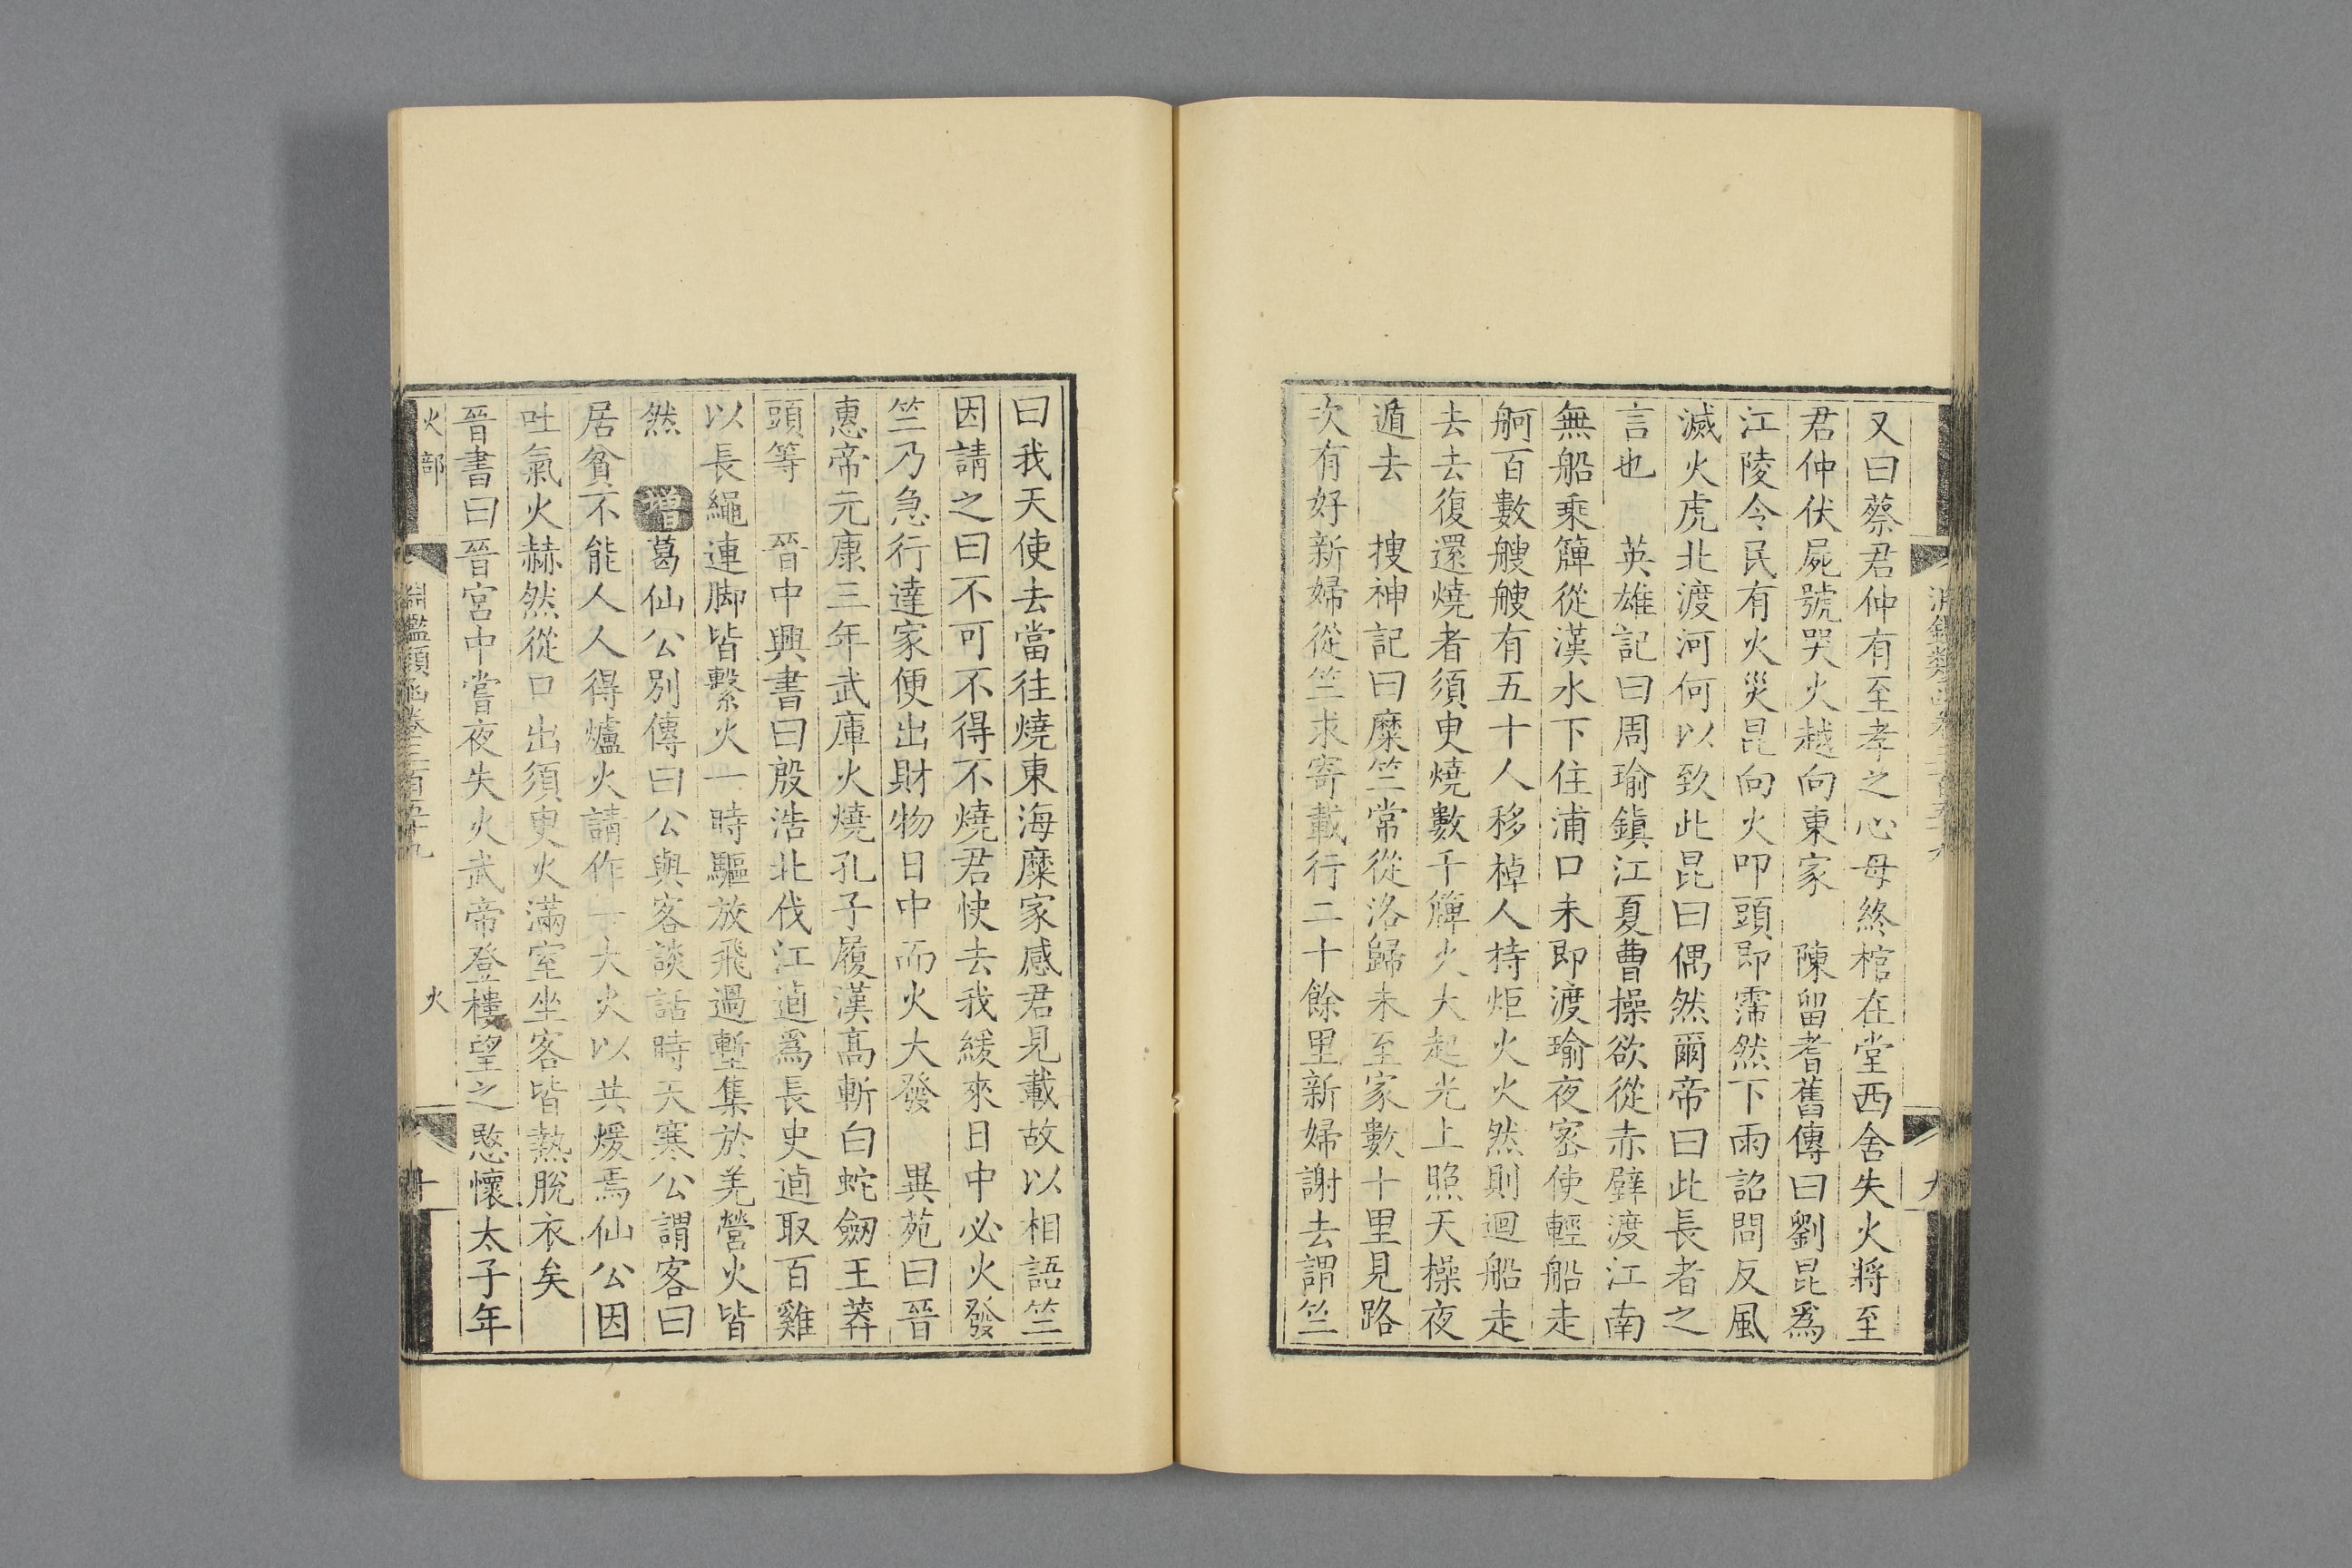 又曰蔡君仲有至孝之心母終棺在堂西舍失火將至
君仲伏屍號哭火越向東家　陳留耆舊傳曰劉昆爲
江陵令民有火災昆向火叩頭即霈然下雨詔問反風
滅火虎北渡河何以致此昆曰偶然爾帝曰此長者之
言也　英雄記曰周瑜鎮江夏曹操欲從赤壁渡江南
無船乘簰從漢水下住浦口未即渡瑜夜密使輕船走
舸百數艘艘有五十人移棹人持炬火火然則迴船走
去去復還燒者須臾燒數千簰火大起光上照天操夜
遁去　搜神記曰糜竺常從洛歸未至家數十里見路
次有好新婦從竺求寄載行二十餘里新婦謝去謂竺
曰我天使去當往燒東海糜家感君見載故以相語竺
因請之曰不可不得不燒君快去我緩來日中必火發
竺乃急行達家便出財物日中而火大發　異苑曰晉
惠帝元康三年武庫火燒孔子履漢高斬白蛇劒王莽
頭等　晉中興書曰殷浩北伐江逌爲長史逌取百雞
以長繩連脚皆繫火一時驅放飛過塹集於羌營火皆
然　增葛仙公別傳曰公與客談話時天寒公謂客曰
居貧不能人人得爐火請作一大火以共煖焉仙公因
吐氣火赫然從口出須臾火滿室坐客皆熱脫衣矣
晉書曰晉宮中嘗夜失火武帝登樓望之愍懷太子年
火部
淵鑑類函卷三百五十九
火
十